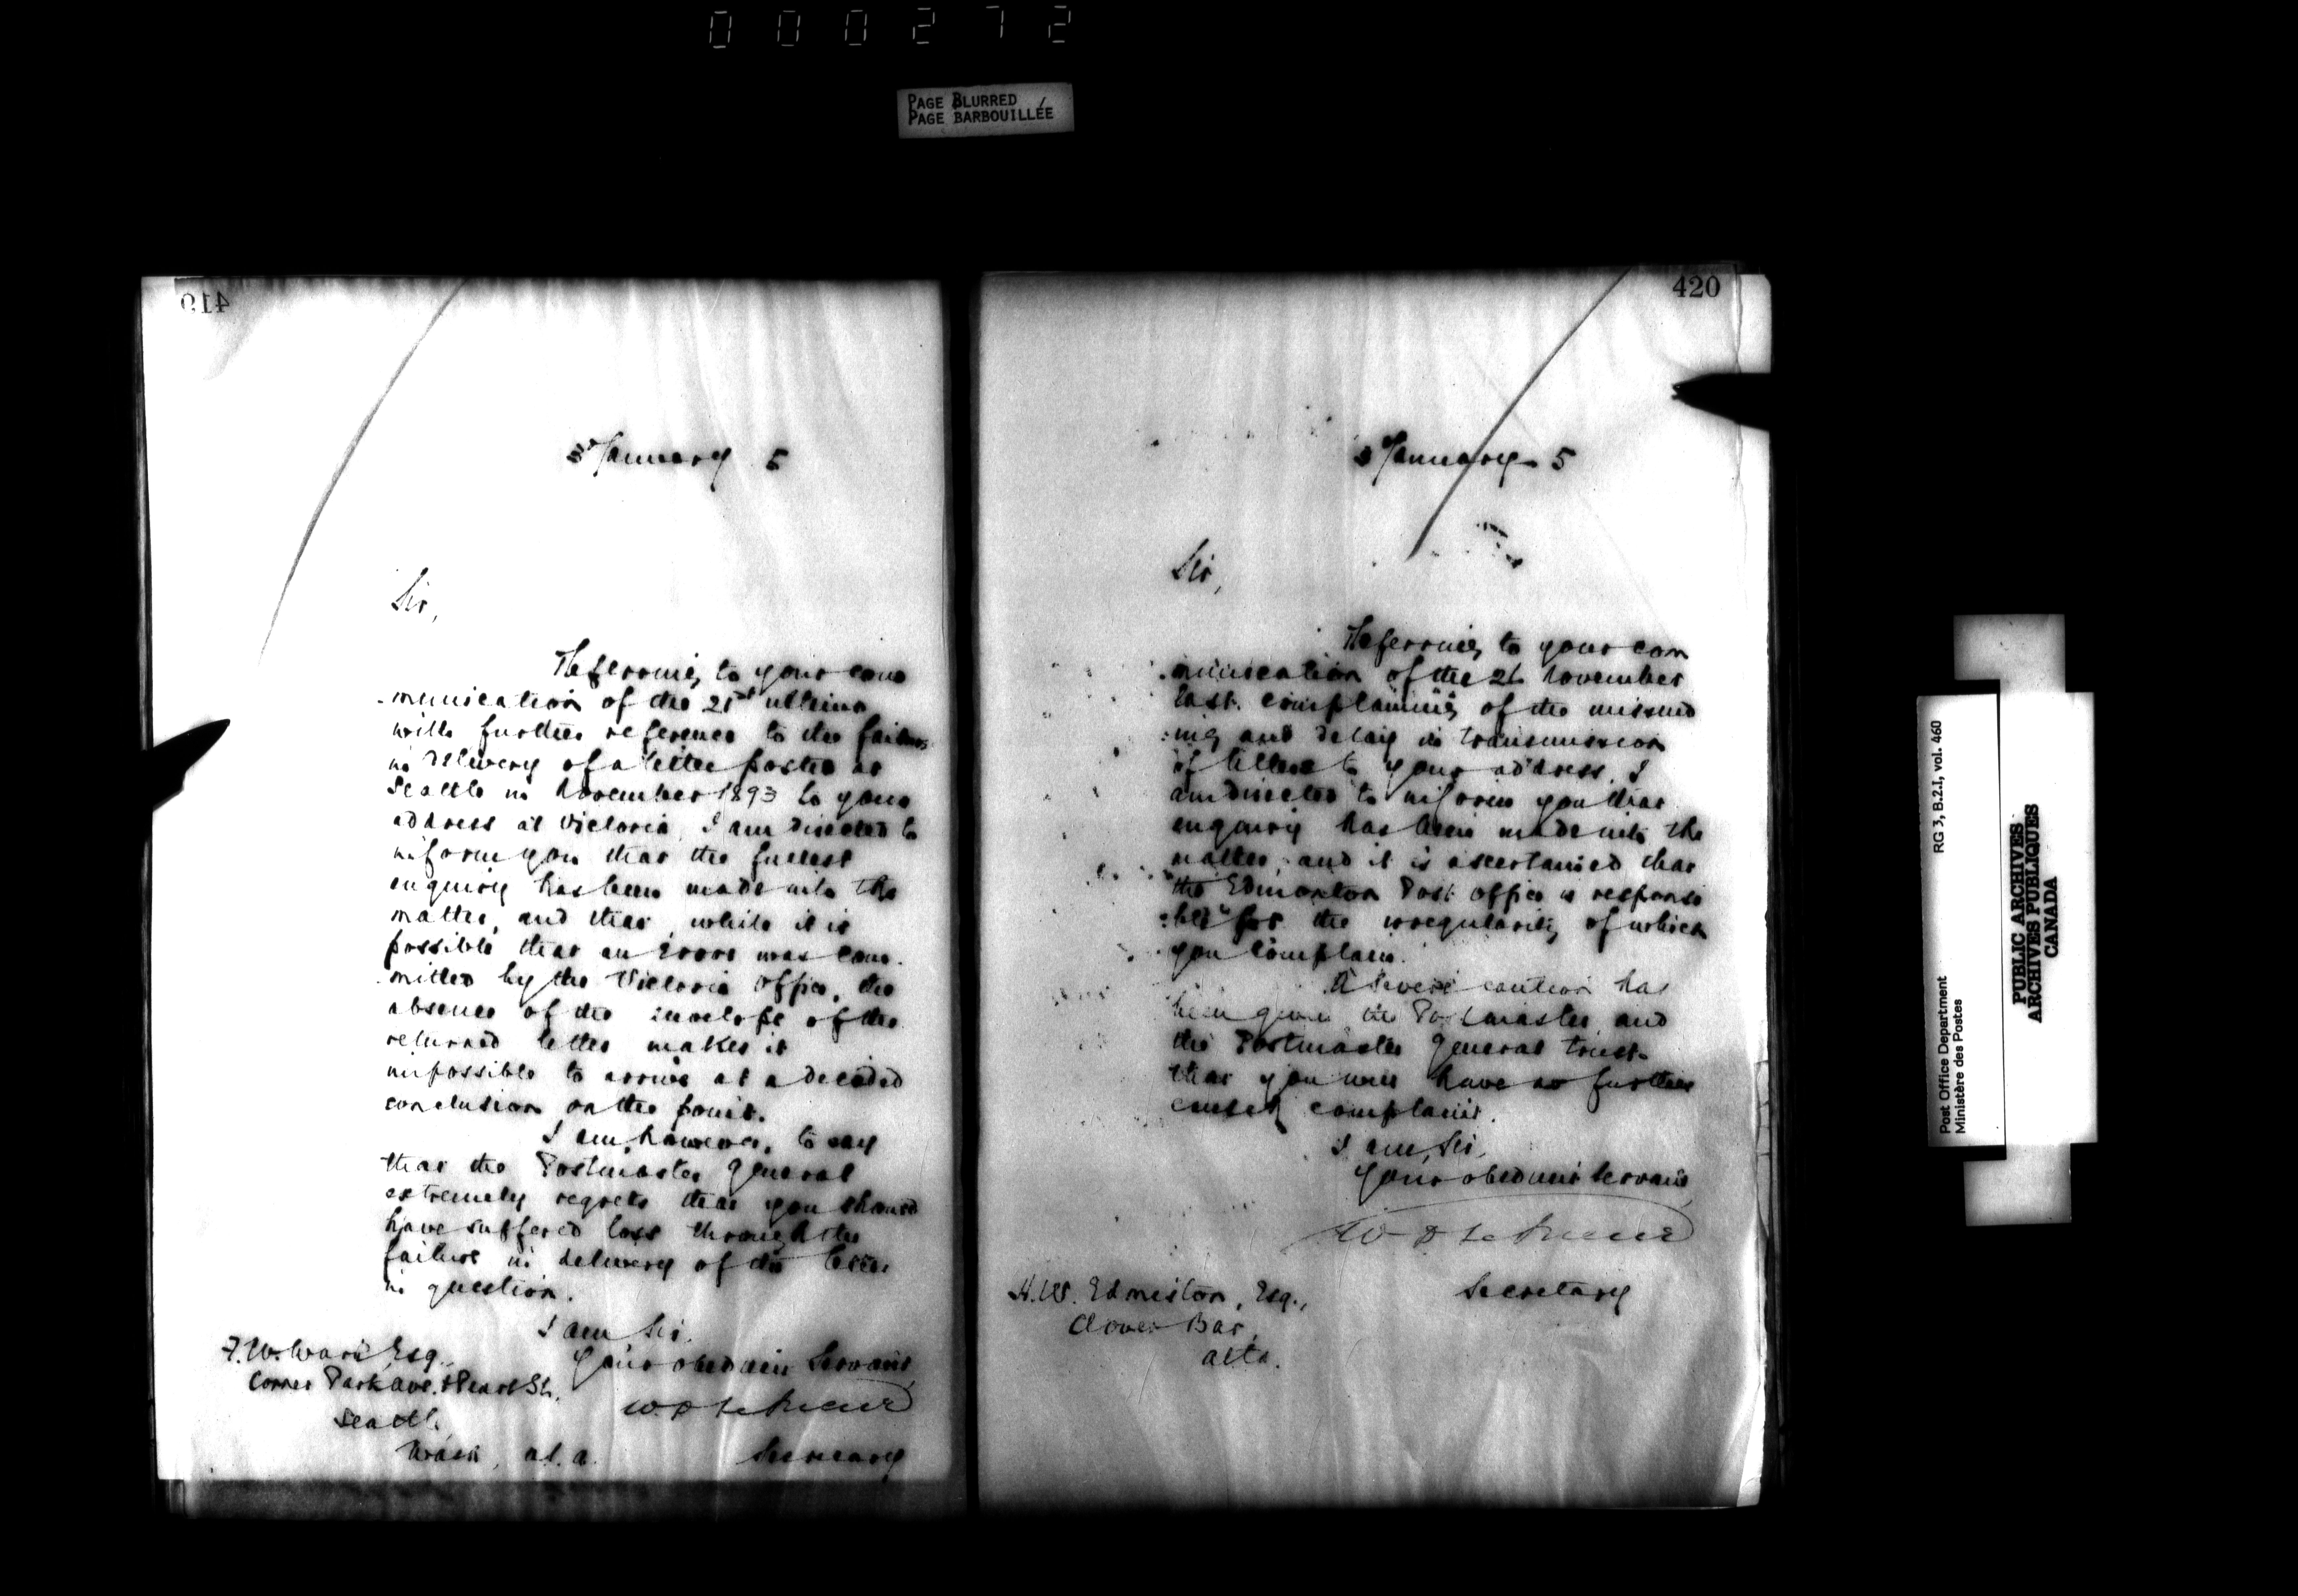 000272
PAGE BLURRED
PAGE BARBOUILLÉE
419
January 5
Sir,
Referring to your com
munication of the 21st ultimo
with further reference to the failure
in delivery of a letter posted at
Seattle in November 1893 to your
address at Victoria, I am directed to
inform you that the fullest
enquiry has been made into the
matter, and that, while it is
possible that an error was com-
mitted by the Victoria Office, the
absence of the envelope of the
returned letter makes it
impossible to arrive at a decided
conclusion on the point.
I am, however, to say
that the Postmaster General
extremely regrets that you should
have suffered loss through the
failure in delivery of the letter
in question.
I am, Sir,
Your obedient Servant,
Secretary
F. W. Esq.
Corner Park Ave. & Pearl St.,
Seattle
Wash, U.S.A.
420
January 5
Sir,
Referring to your com
munication of the November
last, complaining of the missend
:ing and delay in transmission
of letters to your address, I
am directed to inform you that
enquiry has been made into the
matter, and it is ascertained that
the Edmonton Post Office is responsi
:ble for the irregularity of which
you complain.
A severe caution has
been given the Postmaster, and
the Postmaster General trusts
that you will have no further
cause of complaint.
I am, Sir,
Your obedient Servant,
Secretary
H. W. Edmiston, Esq.,
Clover Bar,
Alta.
Post Office Department RG 3, B.2.1, vol. 460
Ministère des Postes
PUBLIC ARCHIVES
ARCHIVES PUBLIQUES
CANADA